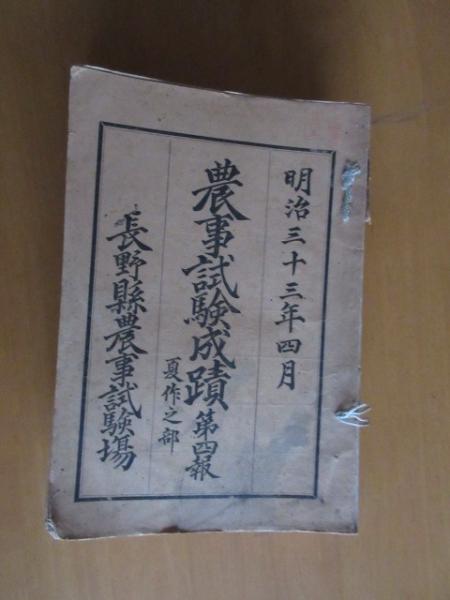 明治三十三年四月
農事試験成蹟第四報
夏作之部
長野縣農事試験塲